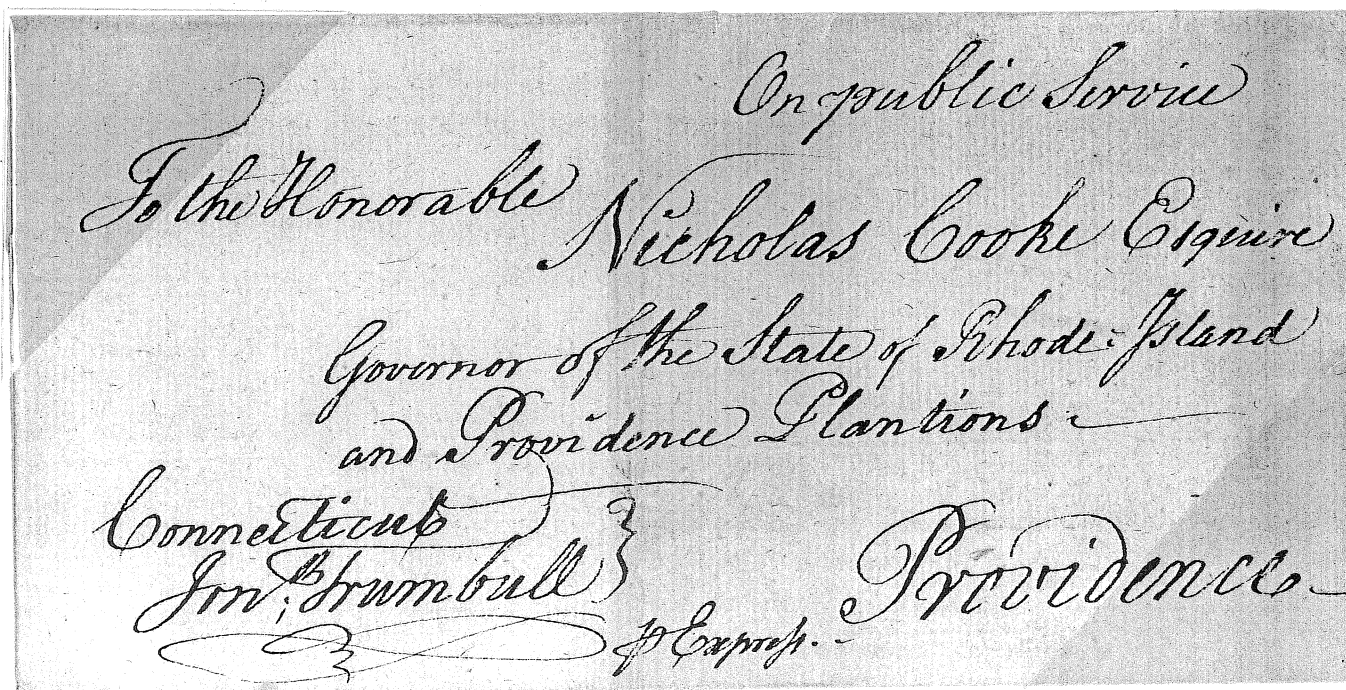 On public Service
To the Honorable
Nicholas Cooke Esquire
Governor of the State of Rhode=Island
and Providence Plantions
Connecticut
Jonth; Trumbull
Providence
℔ Express.